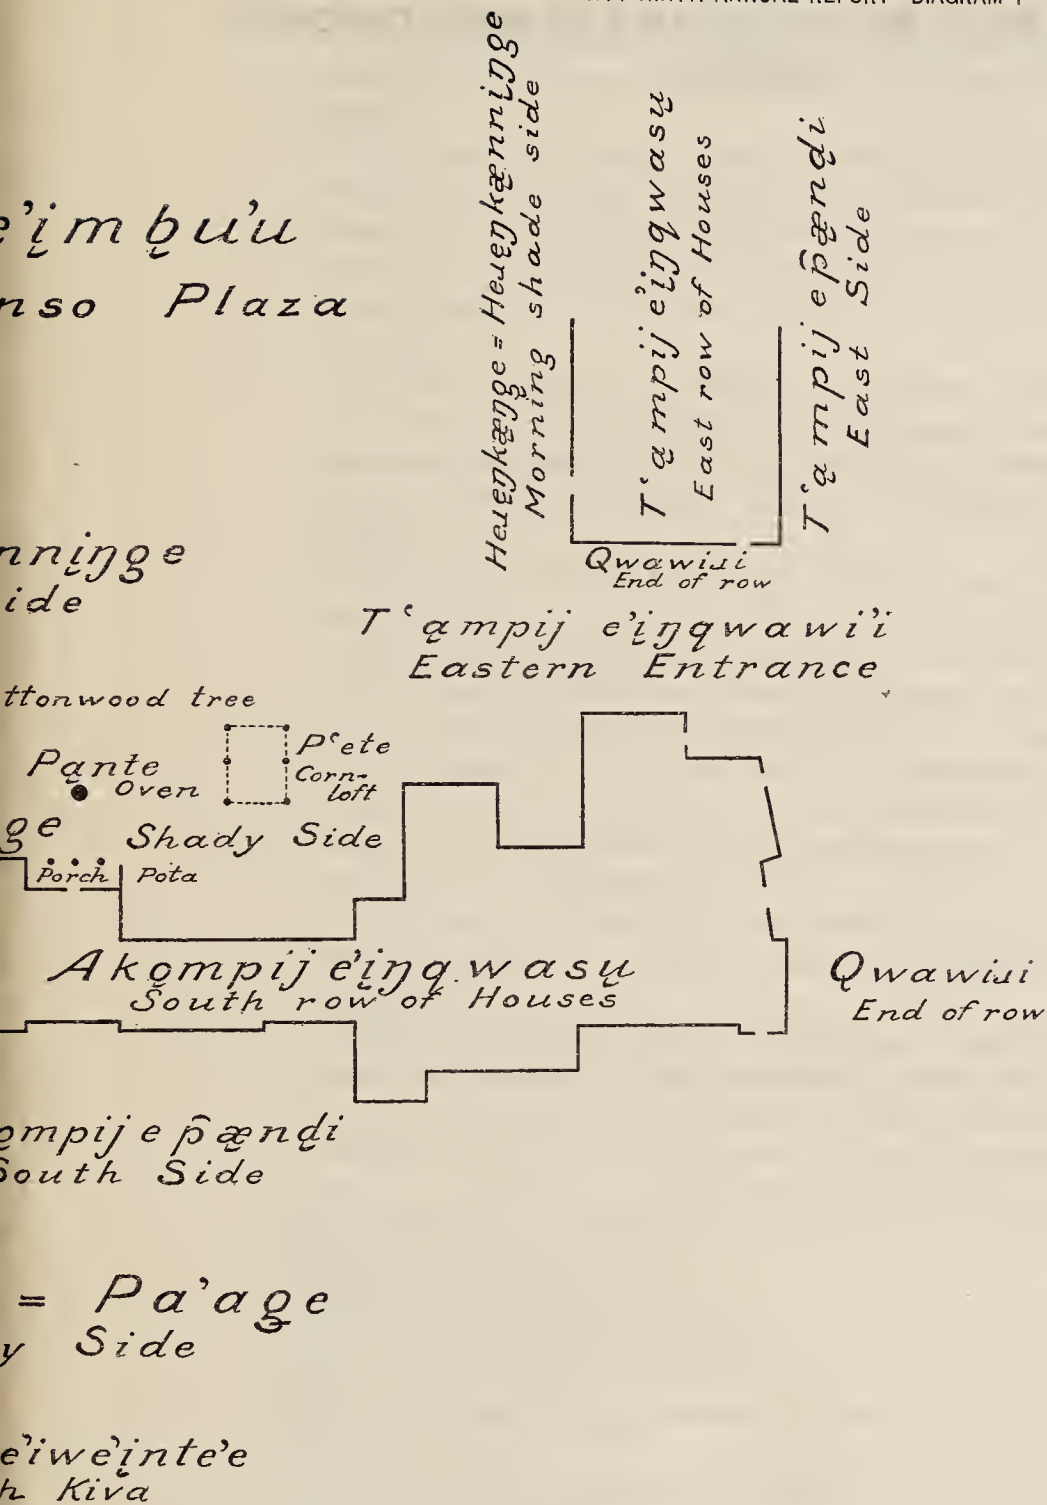 ANNUAL REPORT DIAGRAM 1
e’i̜m b̜u’u
nso Plaza
Morning shade side
T‘ą mpij e’i̜ŋqwasų
East row of Houses
T‘ą mpij e p̑æ̨nd̜i
East Side
Qwawiɹi
End of row
nni̜ŋg̜e
ide
T‘ąmpij e’i̜ŋqwawi’i
Eastern Entrance
ttonwood tree
P‘ete
Corn-
loft
Pąnte
Oven
g̜e Shady Side
Porch Pota
Akǫmpij e’i̜ŋqwasų
South row of Houses
Qwawiɹi
End of row
ǫmpij e p̑æ̨nd̜i
South Side
= Pa’ag̜e
y Side
e’iwe’i̜nte’e
h Kiva